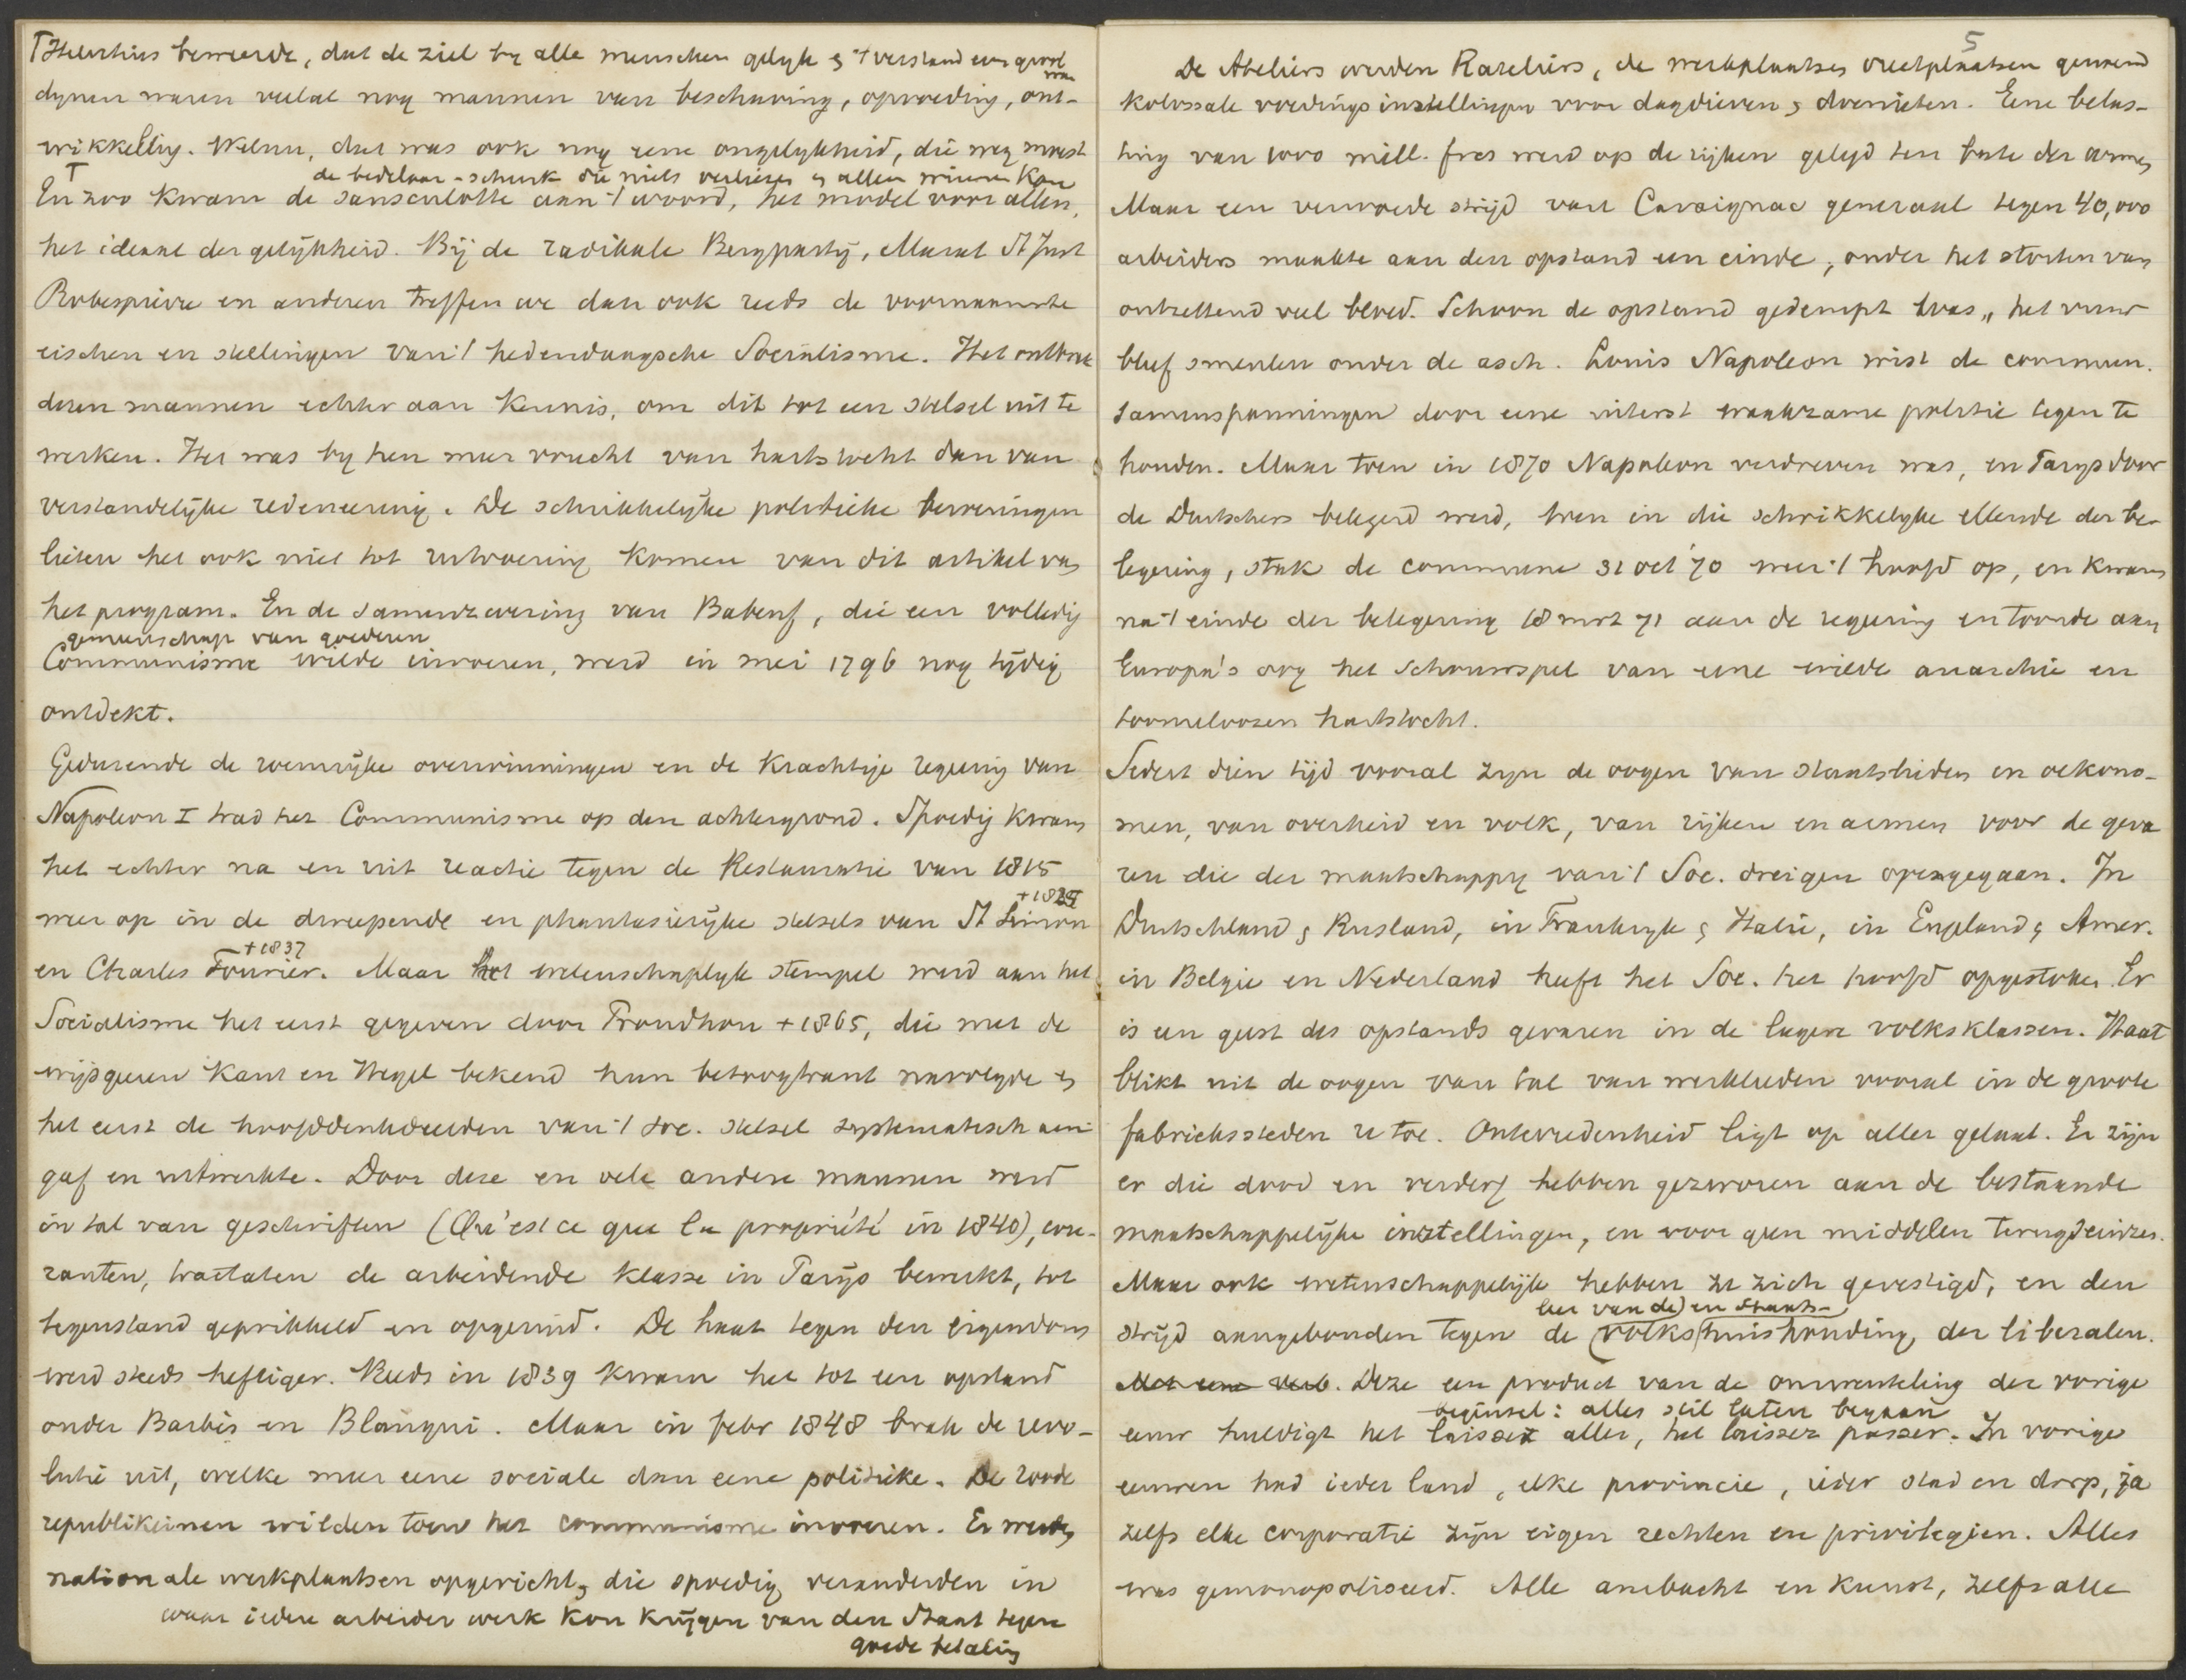 Γ Helvetius beweerde, dat de ziel by alle menschen gelyk & 't verstand een gevolg was
dynen waren veelal nog mannen van beschaving, opvoeding, ont-
wikkeling. Welnu, dat was ook nog eene ongelykheid, die weg moest
Γ de bedelaar-schurk die niets verliezen & alles winnen kan
En zoo kwam de sansculotte aan 't woord, het model voor allen,
het ideaal der gelijkheid. Bij de radikale Bergparty, Marat St Just
Robespierre en anderen treffen we dan ook reeds de voornaamste
eischen en stellingen van 't hedendaagsche Socialisme. Het ontbrak
dezen mannen echter aan kennis, om dit tot een stelsel uit te
werken. Het was by hen meer vrucht van hartstocht dan van
verstandelijke redeneering. De schrikkelijke politieke beroeringen
lieten het ook niet tot uitvoering komen van dit artikel van
het program. En de samenzwering van Babeuf, die een volledig
gemeenschap van goederen
Communisme wilde invoeren, werd in mei 1796 nog tijdig
ontdekt.
Gedurende de roemrijke overwinningen en de krachtige regering van
Napoleon I trad het Communisme op den achtergrond. Spoedig kwam
het echter na en uit reactie tegen de Restauratie van 1815
+ 1825
weer op in de dweepende en phantasierijke stelsels van St Simon
+ 1837
en Charles Fourier. Maar het wetenschaplyk stempel werd aan het
Socialisme het eerst gegeven door Proudhon + 1865, die met de
wijsgeeren Kant en Hegel bekend hun betoogtrant navolgde &
het eerst de hoofddenkbeelden van 't soc. stelsel systematisch aan-
gaf en uitwerkte. Door deze en vele andere mannen werd
in tal van geschriften (Qu'est ce que la propriété in 1840), cou-
ranten, tractaten de arbeidende klasse in Parijs bewerkt, tot
tegenstand geprikkeld en opgeruid. De haat tegen den eigendom
werd steeds heftiger. Reeds in 1839 kwam het tot een opstand
onder Barbès en Blanqui. Maar in febr 1848 brak de revo-
lutie uit, welke meer eene sociale dan eene politieke. De roode
republikeinen wilden toen het communisme invoeren. Er werden
nationale werkplaatsen opgericht, die spoedig veranderden in
waar iedere arbeider werk kon krijgen van den Staat tegen
goede betaling
5
De Ateliers werden Rateliers, de werkplaatsen vreetplaatsen genaamd
kolossale voedingsinstellingen voor dagdieven & doenieten. Eene belas-
ting van 1000 mill. frcs werd op de rijken gelegd ten bate der armen
Maar een verwoede strijd van Cavaignac generaal tegen 40,000
arbeiders maakte aan den opstand een einde, onder het storten van
ontzettend veel bloed. Schoon de opstand gedempt was, het vuur
bleef smeulen onder de asch. Louis Napoleon wist de commun.
samenspanningen door eene uiterst waakzame politie tegen te
houden. Maar toen in 1870 Napoleon verdreven was, en Parys door
de Duitschers belegerd werd, toen in die schrikkelyke ellende der be-
legering, stak de commune 31 oct '70 weer 't hoofd op, en kwam
na 't einde der belegering 18 mrt 71 aan de regering en toonde aan
Europa's oog het schouwspel van eene wilde anarchie en
toomeloozen hartstocht.
Sedert dien tijd vooral zyn de oogen van staatslieden en oekono-
men, van overheid en volk, van rijken en armen voor de geva
ren die der maatschappy van 't Soc. dreigen opengegaan. In
Duitschland & Rusland, in Frankryk & Italie, in Engeland & Amer.
in Belgie en Nederland heeft het Soc. het hoofd opgestoken. Er
is een geest des opstands gevaren in de lagere volksklassen. Haat
blikt uit de oogen van tal van werklieden vooral in de groote
fabriekssteden u toe. Ontevredenheid ligt op aller gelaat. Er zijn
er die dood en verderf hebben gezworen aan de bestaande
maatschappelijke instellingen, en voor geen middelen terugdeinzen.
Maar ook wetenschappelijk hebben ze zich gevestigd, en den
leer van de) en Staats-
strijd aangebonden tegen de (volkshuishouding, der liberalen.
Met eene verb. Deze een product van de omwenteling der vorige
beginsel: alles stil laten begaan
eeuw huldigt het laissez aller, het laissez passer. In vorige
eeuwen had ieder land, elke provincie, ieder stad en dorp, ja
zelfs elke corporatie zijn eigen rechten en privilegien. Alles
was gemonopoliseerd. Alle ambacht en kunst, zelfs alle